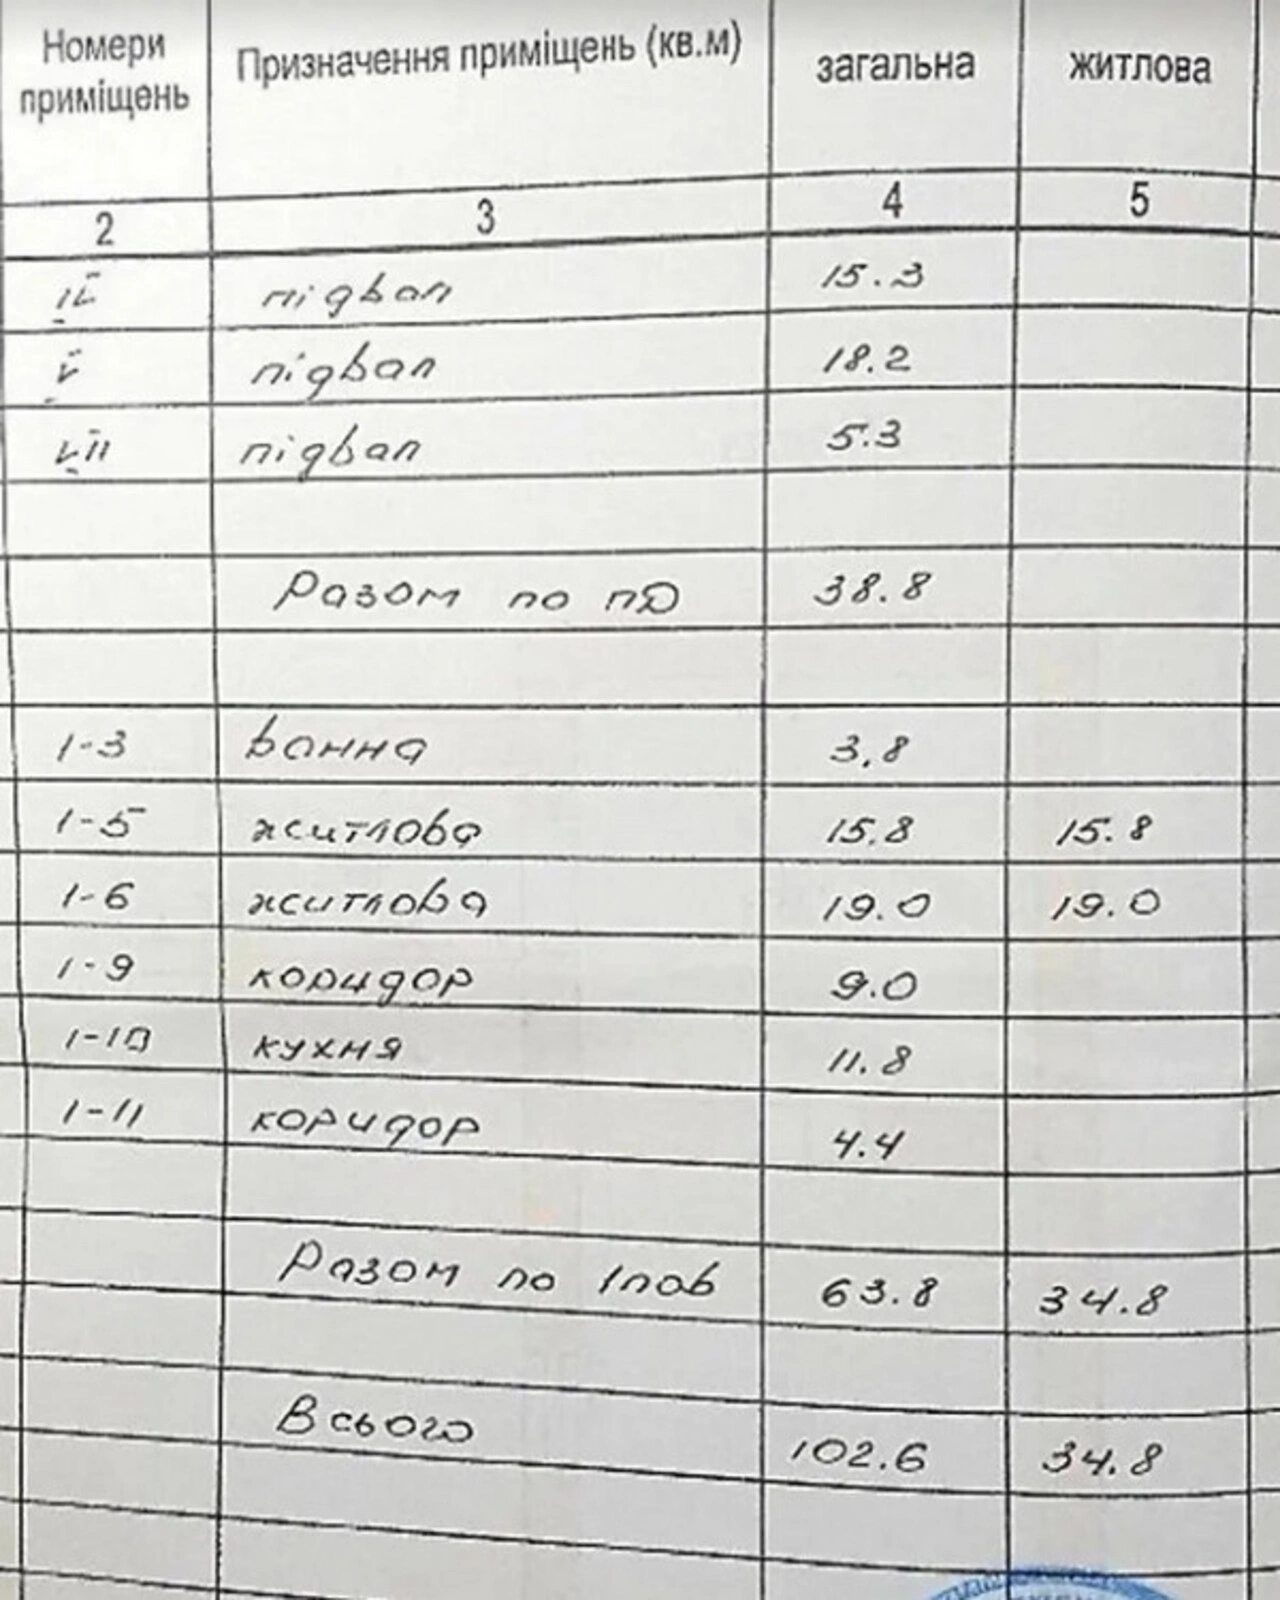 Номери приміщень Призначення приміщень (кв.м) загальна житлова
2 3 4 5
підвал 15.3
V підвал 18.2
VII підвал 5.3
Разом по пД 38.8
1-3 ванна 3.8
1-5 житлова 15.8 15.8
1-6 житлова 19.0 19.0
1-9 коридор 9.0
1-10 кухня 11.8
1-11 коридор 4.4
Разом по 1пов 63.8 34.8
Всього 102.6 34.8